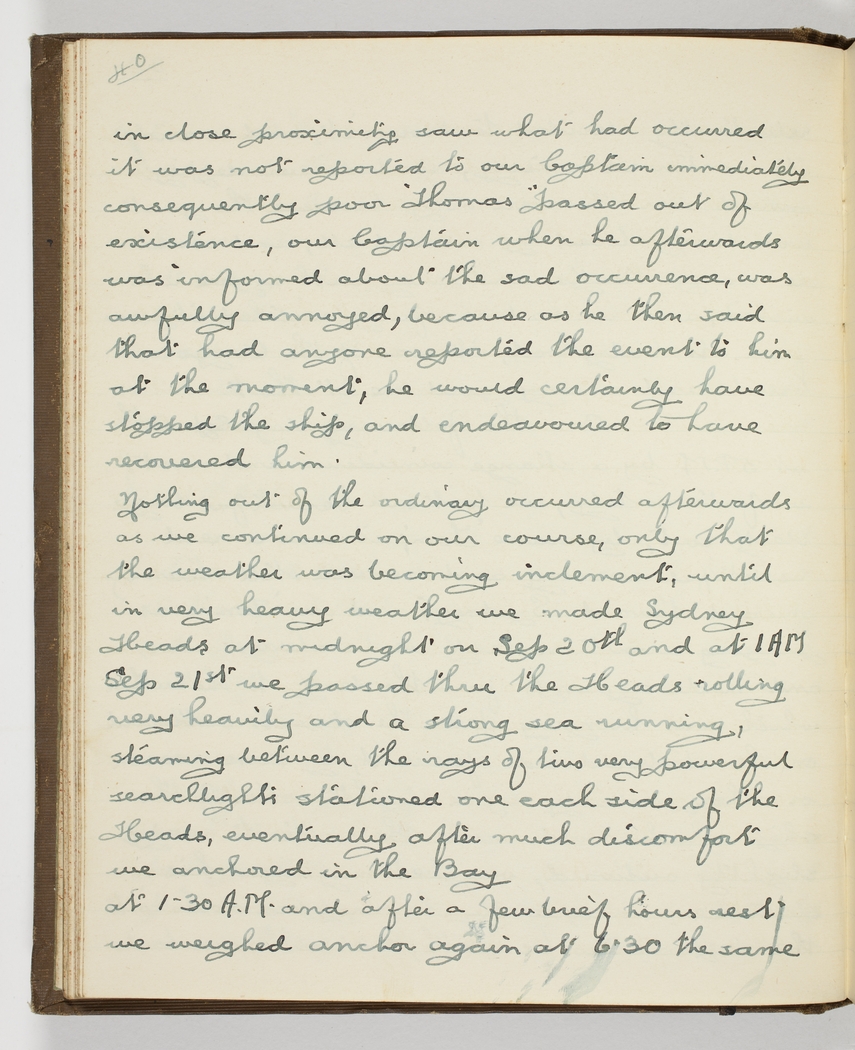 40
in close proximity saw what had occurred
it was not reported to our Captain immediately
consequently poor "Thomas" passed out of
existence, our Captain when he afterwards
was informed about the sad occurrence, was
awfully annoyed, because as he then said
that had anyone reported the event to him
at the moment, he would certainly have
stopped the ship, and endeavoured to have
recovered him.
Nothing out of the ordinary occurred afterwards
as we continued on our course, only that
the weather was becoming inclement, until
in very heavy weather we made Sydney
Heads at midnight on Sep 20th and at 1 AM
Sep 21st we passed thru the Heads rolling
very heavily and a strong sea running,
steaming between the rays of two very powerful
searchlights stationed one each side of the
Heads, eventually after much discomfort
we anchored in the Bay
at 1-30 A.M. and after a few brief hours rest
we weighed anchor again at 6.30 the same